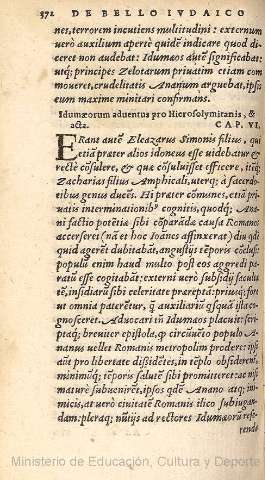 372 DE BELLO IVDAICO
nes, terrorem incutiens multitudini: externum
uerò auxilium apertè quidẽ indicare quod di-
ceret non audebat: Idumæos autẽ significabat:
utq; principes Zelotarum priuatim etiam com
moueret, crudelitatis Ananum arguebat, ipsis
eum maxime minitari confirmans.
Idumæorum aduentus pro Hierosolymiranis, &
acta. CAP. VI.
ERant autẽ Eleazarus Simonis filius, qui
etiã prater alios idoneus esse uidebatur &
rectè cõsulere, & que cõsuluisset efficere, itq;
Zacharias filius Amphicali, uterq; à sacerdo-
tibus genus ducẽs. Hi præter cõmunes, etiã pri
uatis interminationibꝰ cognitis, quodq; Ana-
ni factio potẽtiæ sibi cõparãdæ causa Romanos
accerseret (nã et hoc Ioãnes affinxerat) diu qdẽ
quid agerẽt dubitabãt, angustijs tẽporis
populũ enim haud multo post eos aggredi pa-
ratũ esse cogitabãt: externi uerò subsidij faculta
tẽ, insidiarũ sibi celeritate præreptã. prius q; fo
ut omnia paterẽtur, q̃ auxiliariũ
gnosceret. Aduocari tñ Idumæos placuit: scri-
ptaq; breuiter epistola, q circũuẽto populo A-
nanus uellet Romanis metropolim prodere: ip
aũt pro libertate dissidẽtes, in tẽplo obsiderẽt
minimũq; tẽporis salutẽ sibi promitteret: ac ni
maturè subuenirẽt, ipsos qdẽ Anano atq; ini-
micis, at uerò ciuitatẽ Romanis ilico subiugan
dam: pleraq; nũtijs ad rectores Idumæorũ refe-
renda
Ministerio de Educación, Cultura y Deporte